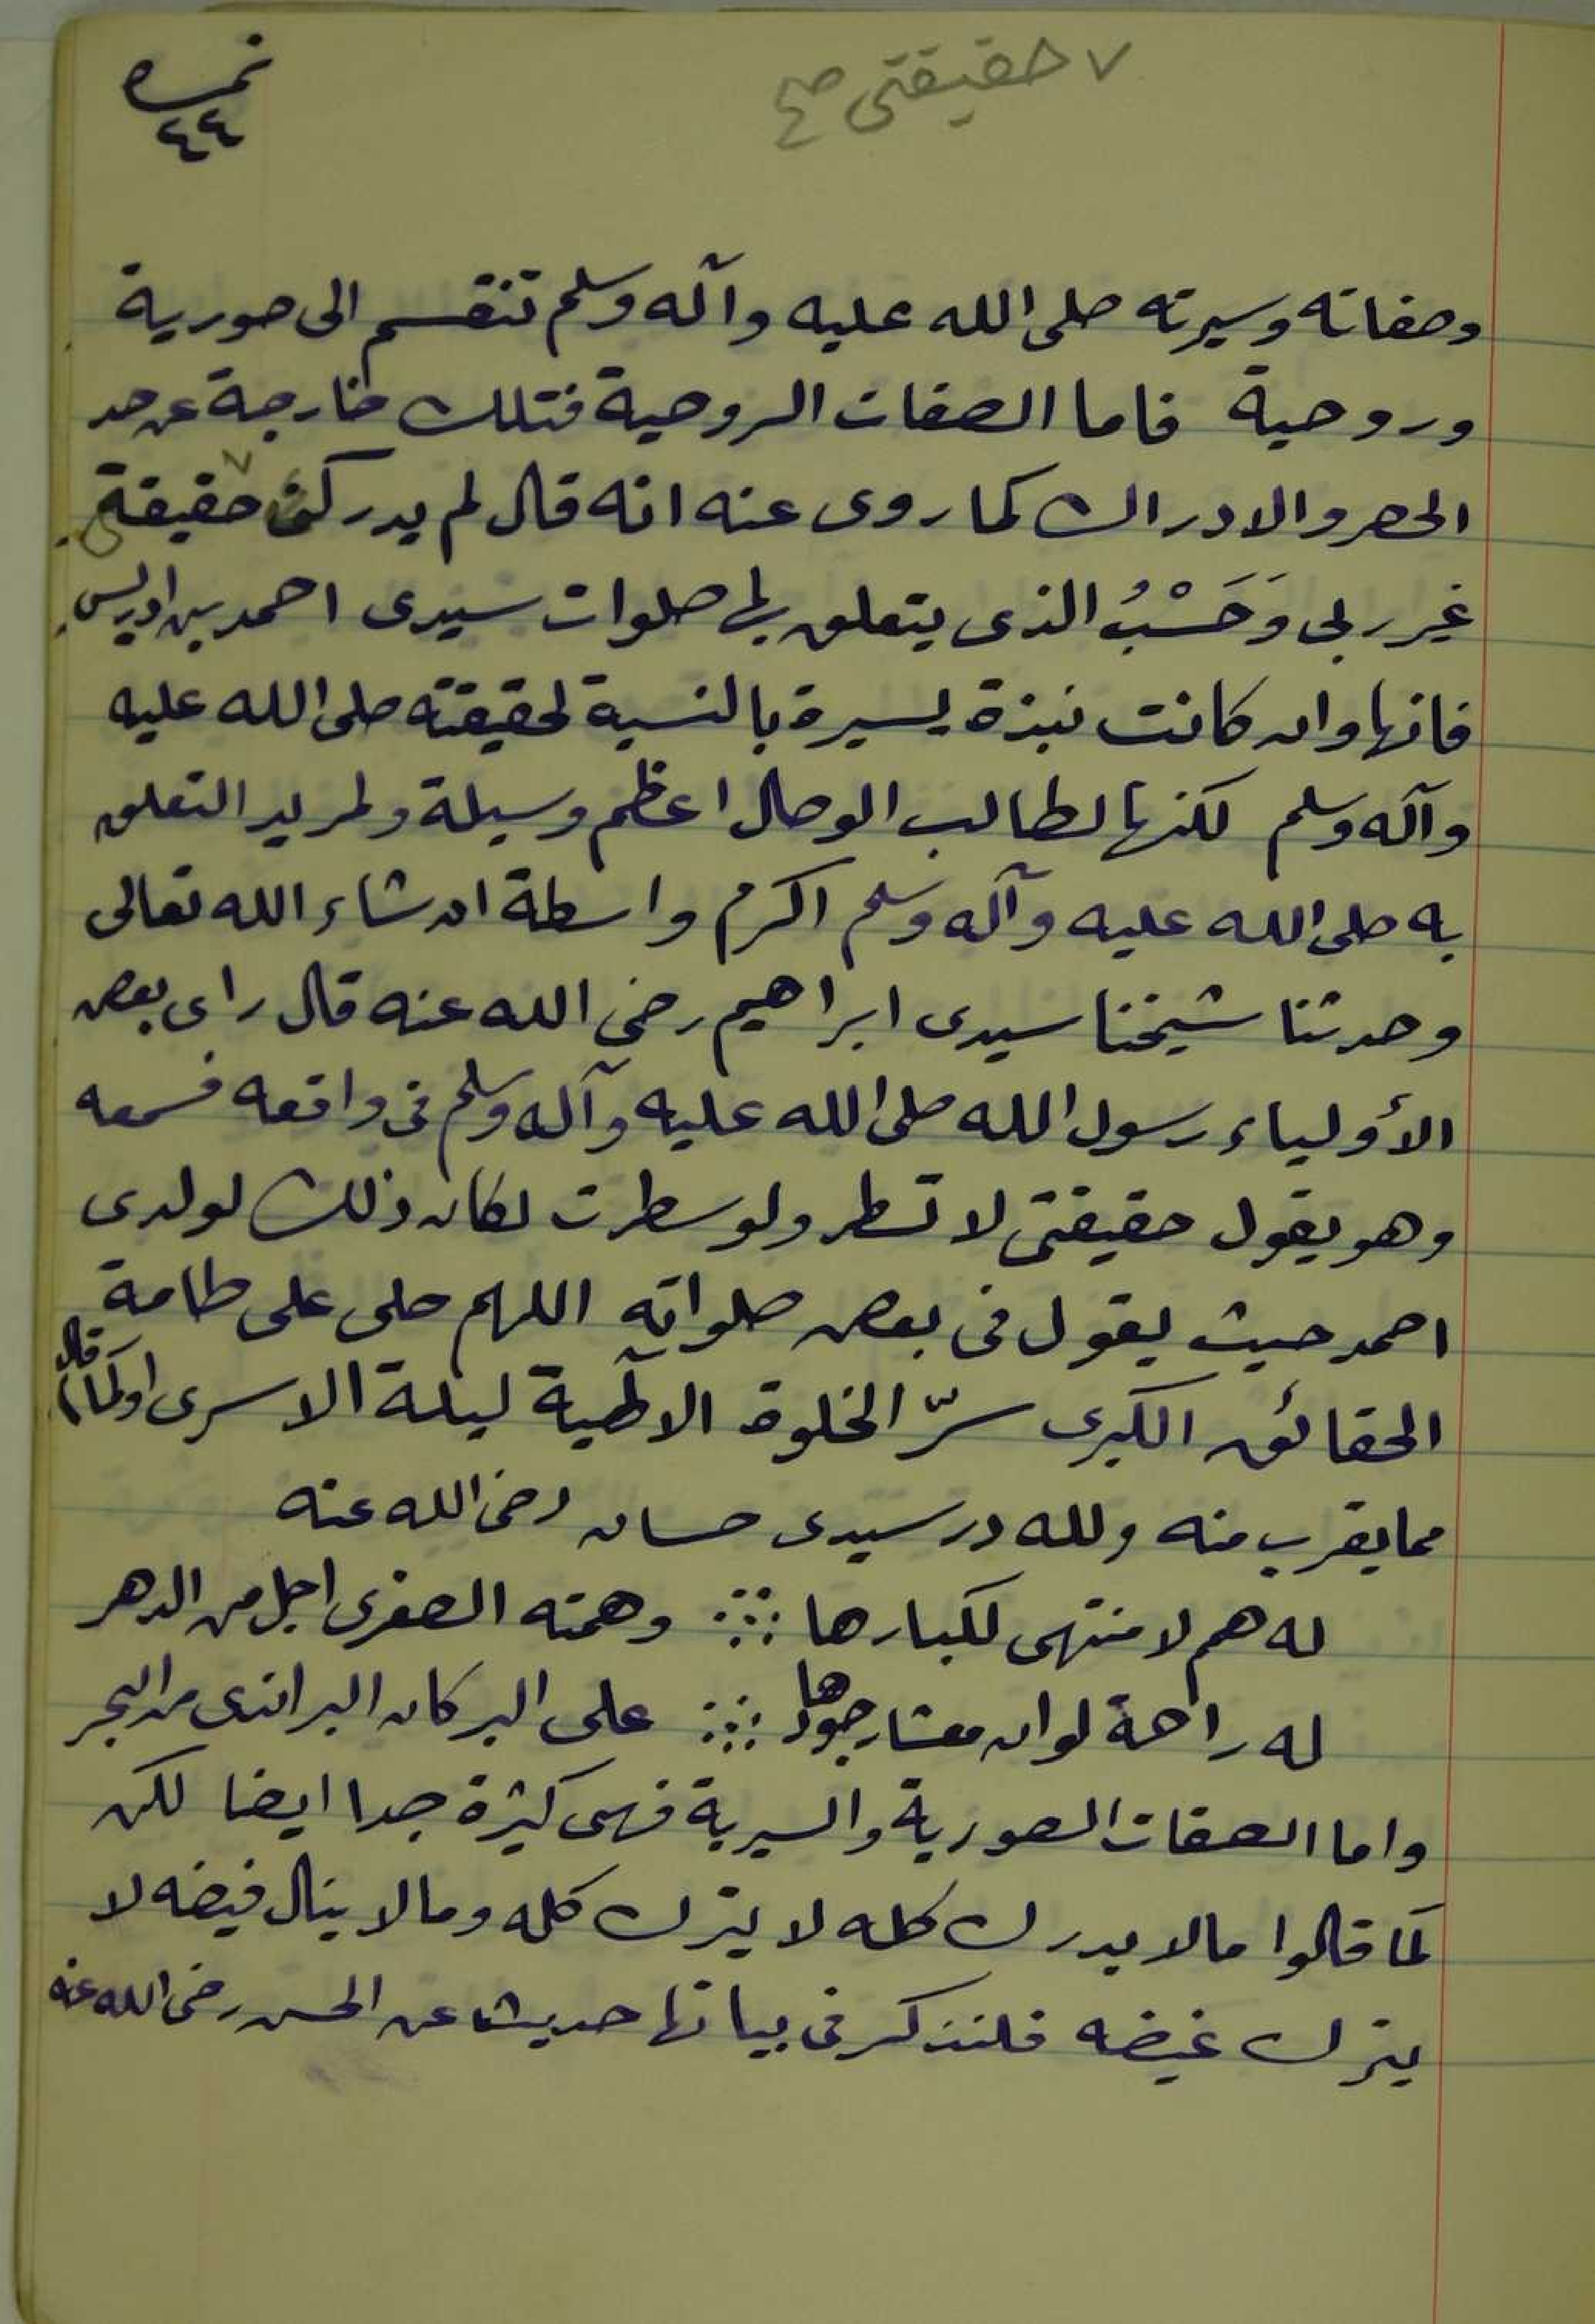 ٧ حقيقتى صح
نمره
٤٤
وصفاته وسيرته صلى الله عليه وآله وسلم تنقسم الى صورية
وروحية فاما الصفات الروحية فتلك خارجة عن حد
الحصر والادراك كما روى عنه انه قال لم يدرك حقيقة
غير ربى وَحَسْبُ الذى يتعلق بها صلوات سيدى احمد بن ادريس
فانها وان كانت نبذة يسيرة بالنسبة لحقيقته صلى الله عليه
وآله وسلم لكنها لطالب الوصال اعظم وسيلة ولمريد التعلق
به صلى الله عليه وآله وسلم اكرم واسطة ان شاء الله تعالى
وحدثنا شيخنا سيدى ابراهيم رضى الله عنه قال راى بعض
الأولياء رسول الله صلى الله عليه وآله وسلم فى واقعه فسمعه
وهو يقول حقيقتى لا تسطر ولو سطرت لكان ذلك لولدى
احمد حيث يقول فى بعض صلواته اللهم صلى على طامة
الحقائق الكبرى سرّ الخلوة الالٓهية ليلة الاسرى او كما قال
مما يقرب منه ولله در سيدى حسان رضى الله عنه
له همم لا منتهى لكبارها ؞ وهمته الصغرى اجل من الدهر
له راحة لو ان معشار جودها ؞ على البر كان البر اندى من البحر
واما الصفات الصورية والسيرية فهى كثيرة جدا ايضا لكن
لما قالوا مالا يدرك كله لا يترك كله ومالا ينال فيضه لا
يترك غيضه فلنذكر فى بيانها حديث عن الحسن رضى الله عنه